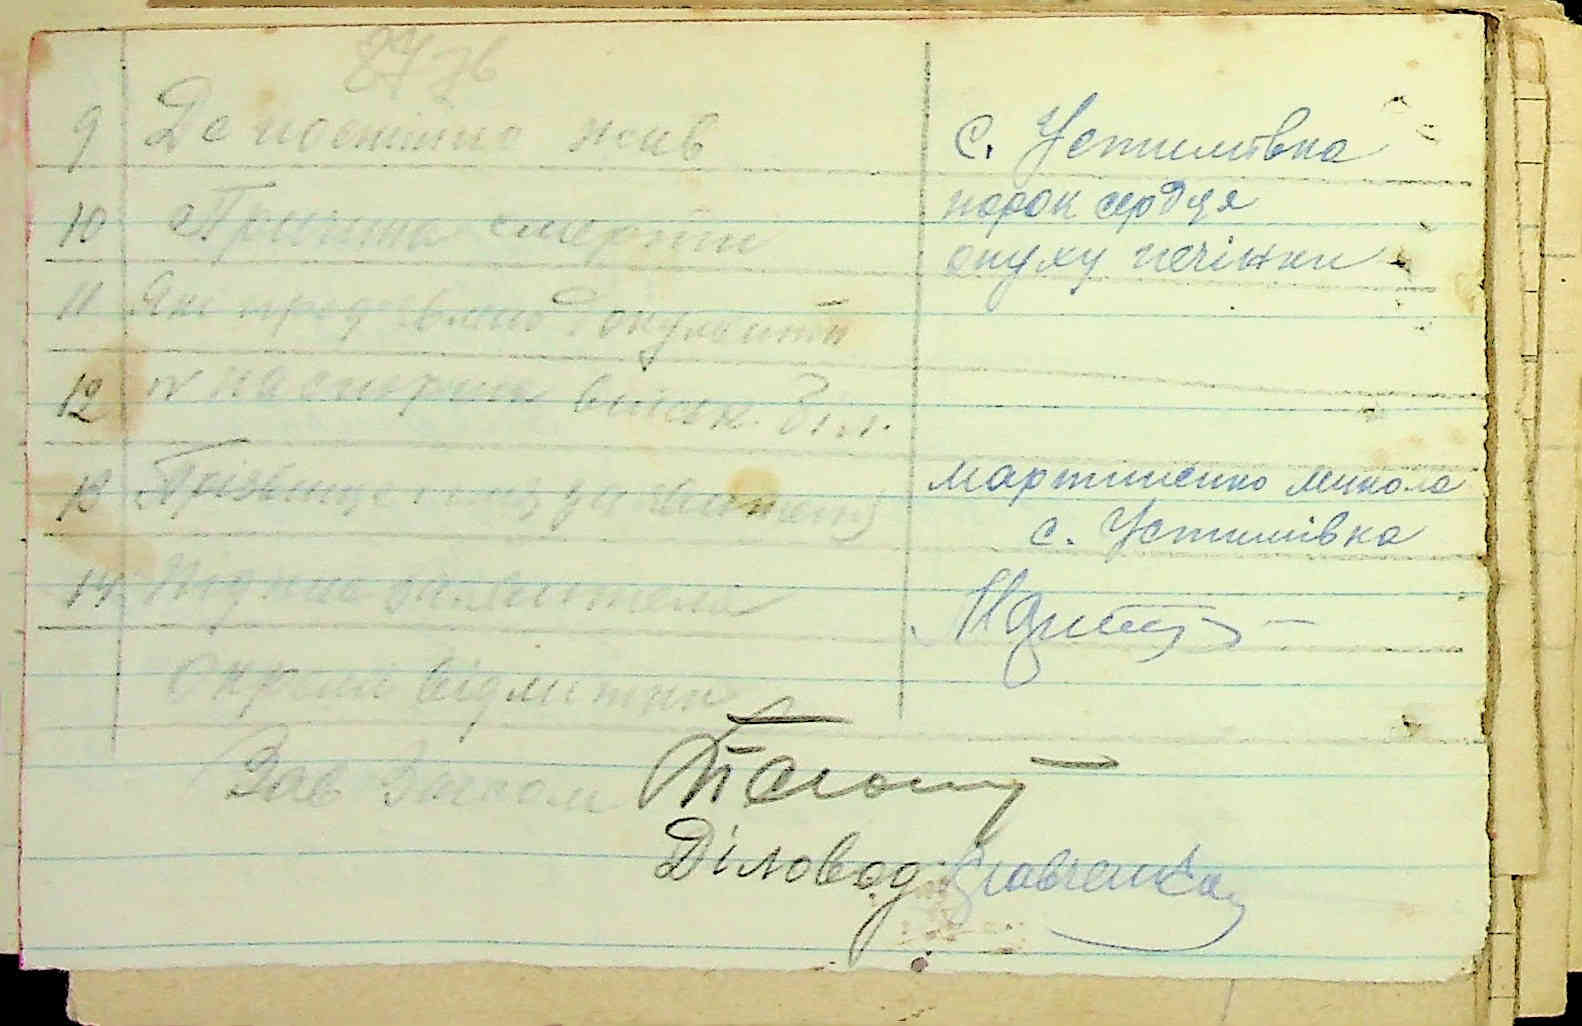 87 зв
9 Де постійно жив с. Устимівка
10 Причина смерти порок сердця
опуху печінки
11 Які пред'явлено документи
12 № паспорта військ. біл.
13 Прізвище заявителя Мартиненко Микола
с. Устимівка
14 Підпис заявителя
Окремі відмітки
Зав Загсом
Діловод Кравченко